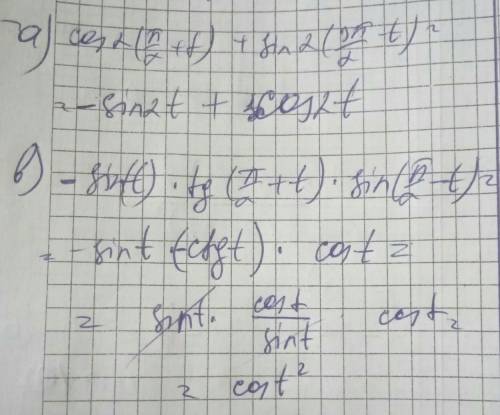 а) cos2(π/2+t) + sin2(3π/2-t)=
= -sin2t + cos2t
б) -sin(t) · tg(π/2+t) · sin(π/2-t)=
= -sint · (-ctgt) · cost =
= sint · cost/sint · cost =
= cost²